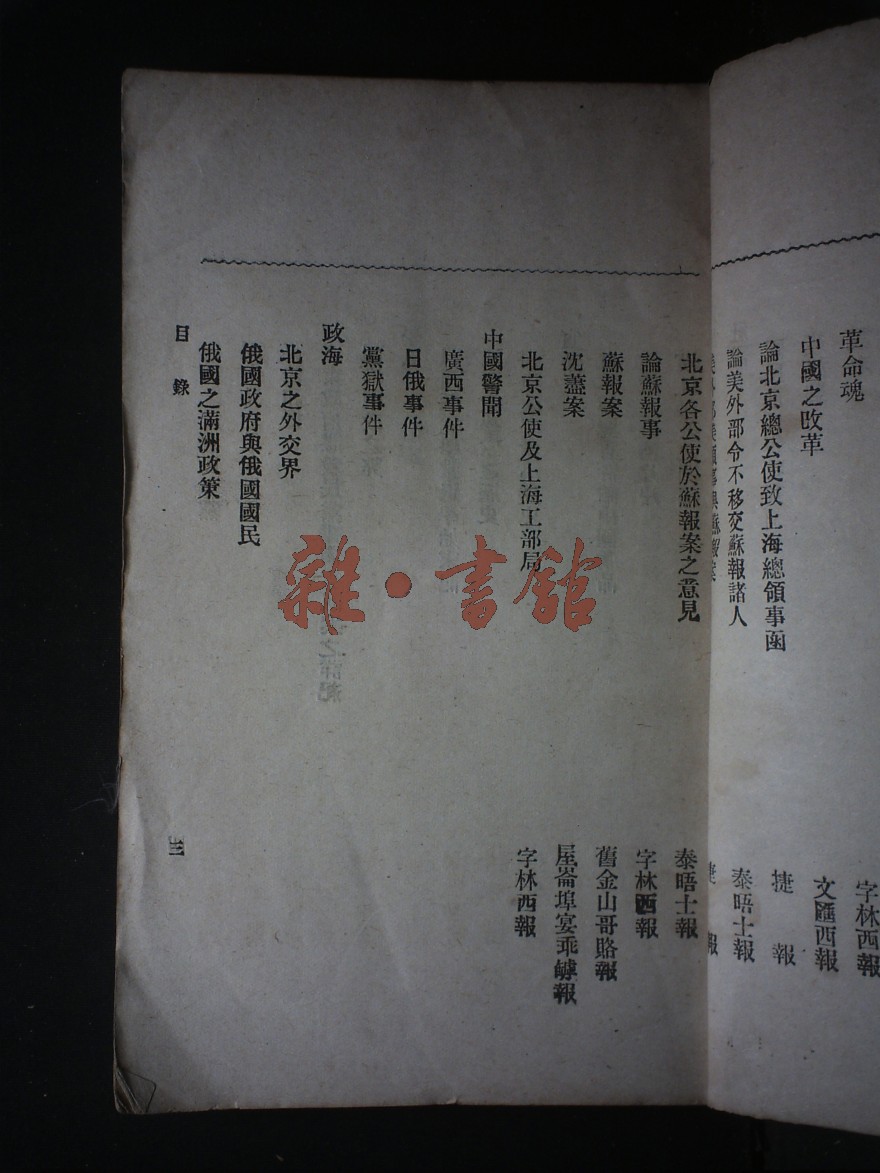 革命魂
字林西報
中國之改革
文匯西報
論北京總公使致上海總領事函
捷報
論美外部令不移交蘇報諸人
泰晤士報
捷報
北京各公使於蘇報案之意見
泰晤士報
論蘇報事
字林西報
蘇報案
舊金山哥賂報
沈藎案
屋崙埠宴乖罅報
北京公使及上海工部局
字林西報
中國警聞
廣西事件
日俄事件
黨獄事件
政海
北京之外交界
俄國政府與俄國國民
俄國之滿洲政策
目錄
三
雜·書館